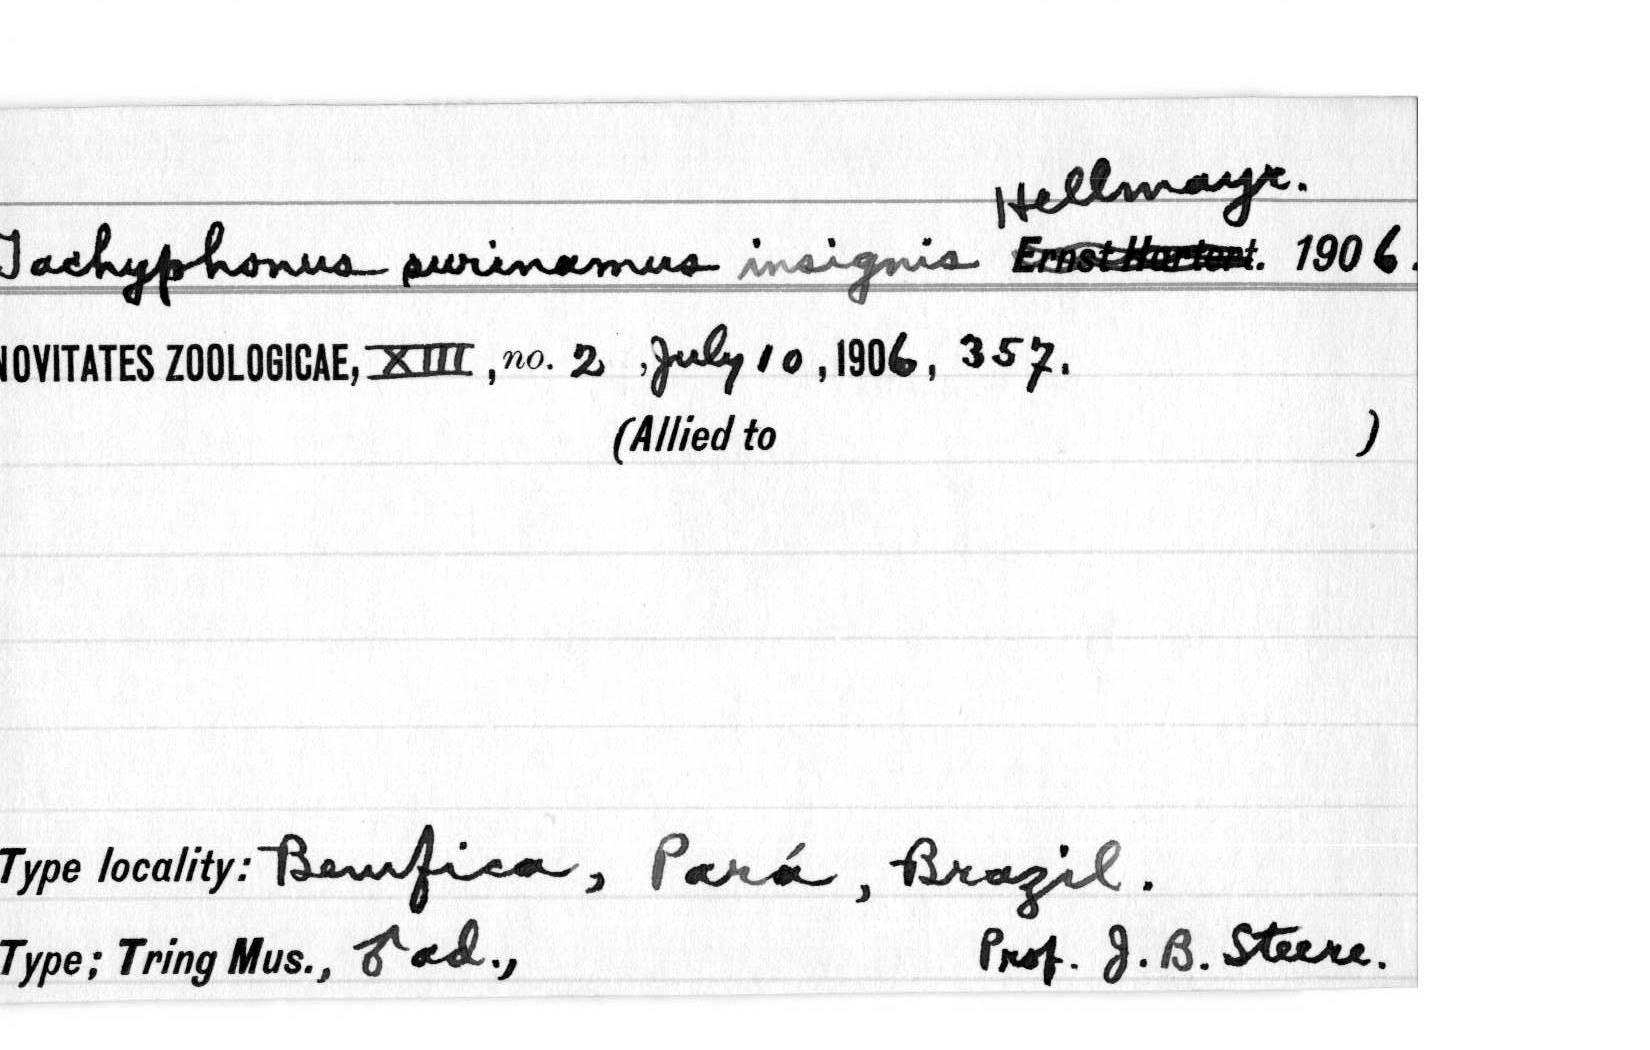 Hellmayr.
Tachyphonus surinamus insignis Ernst Hartert. 1906.
NOVITATES ZOOLOGICAE, XIII, no. 2, July 10, 1906, 357.
(Allied to )
Type locality: Benfica, Pará, Brazil.
Type; Tring Mus., ♂ ad., Prof. J. B. Steere.